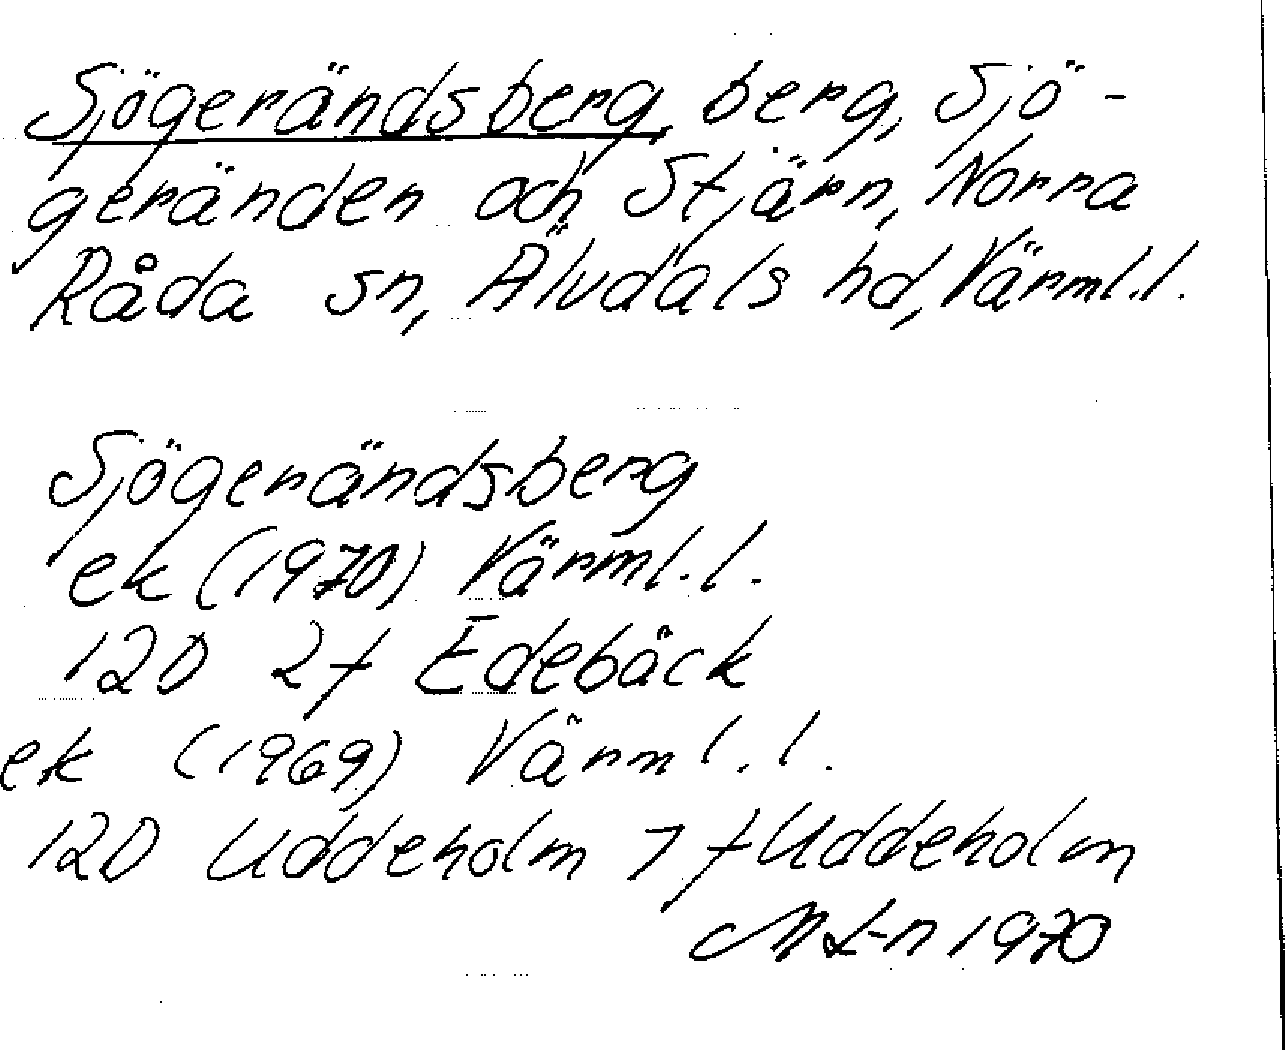 Sjögerändsberg, berg, Sjö-
geränden och Stjärn, Norra
Råda sn, Älvdals hd, Värml.l.
Sjögerändsberg
ek (1970) Värml.l.
12D 2f Edebäck
ek (1969) Värml.l.
12D Uddeholm 7f Uddeholm
1970